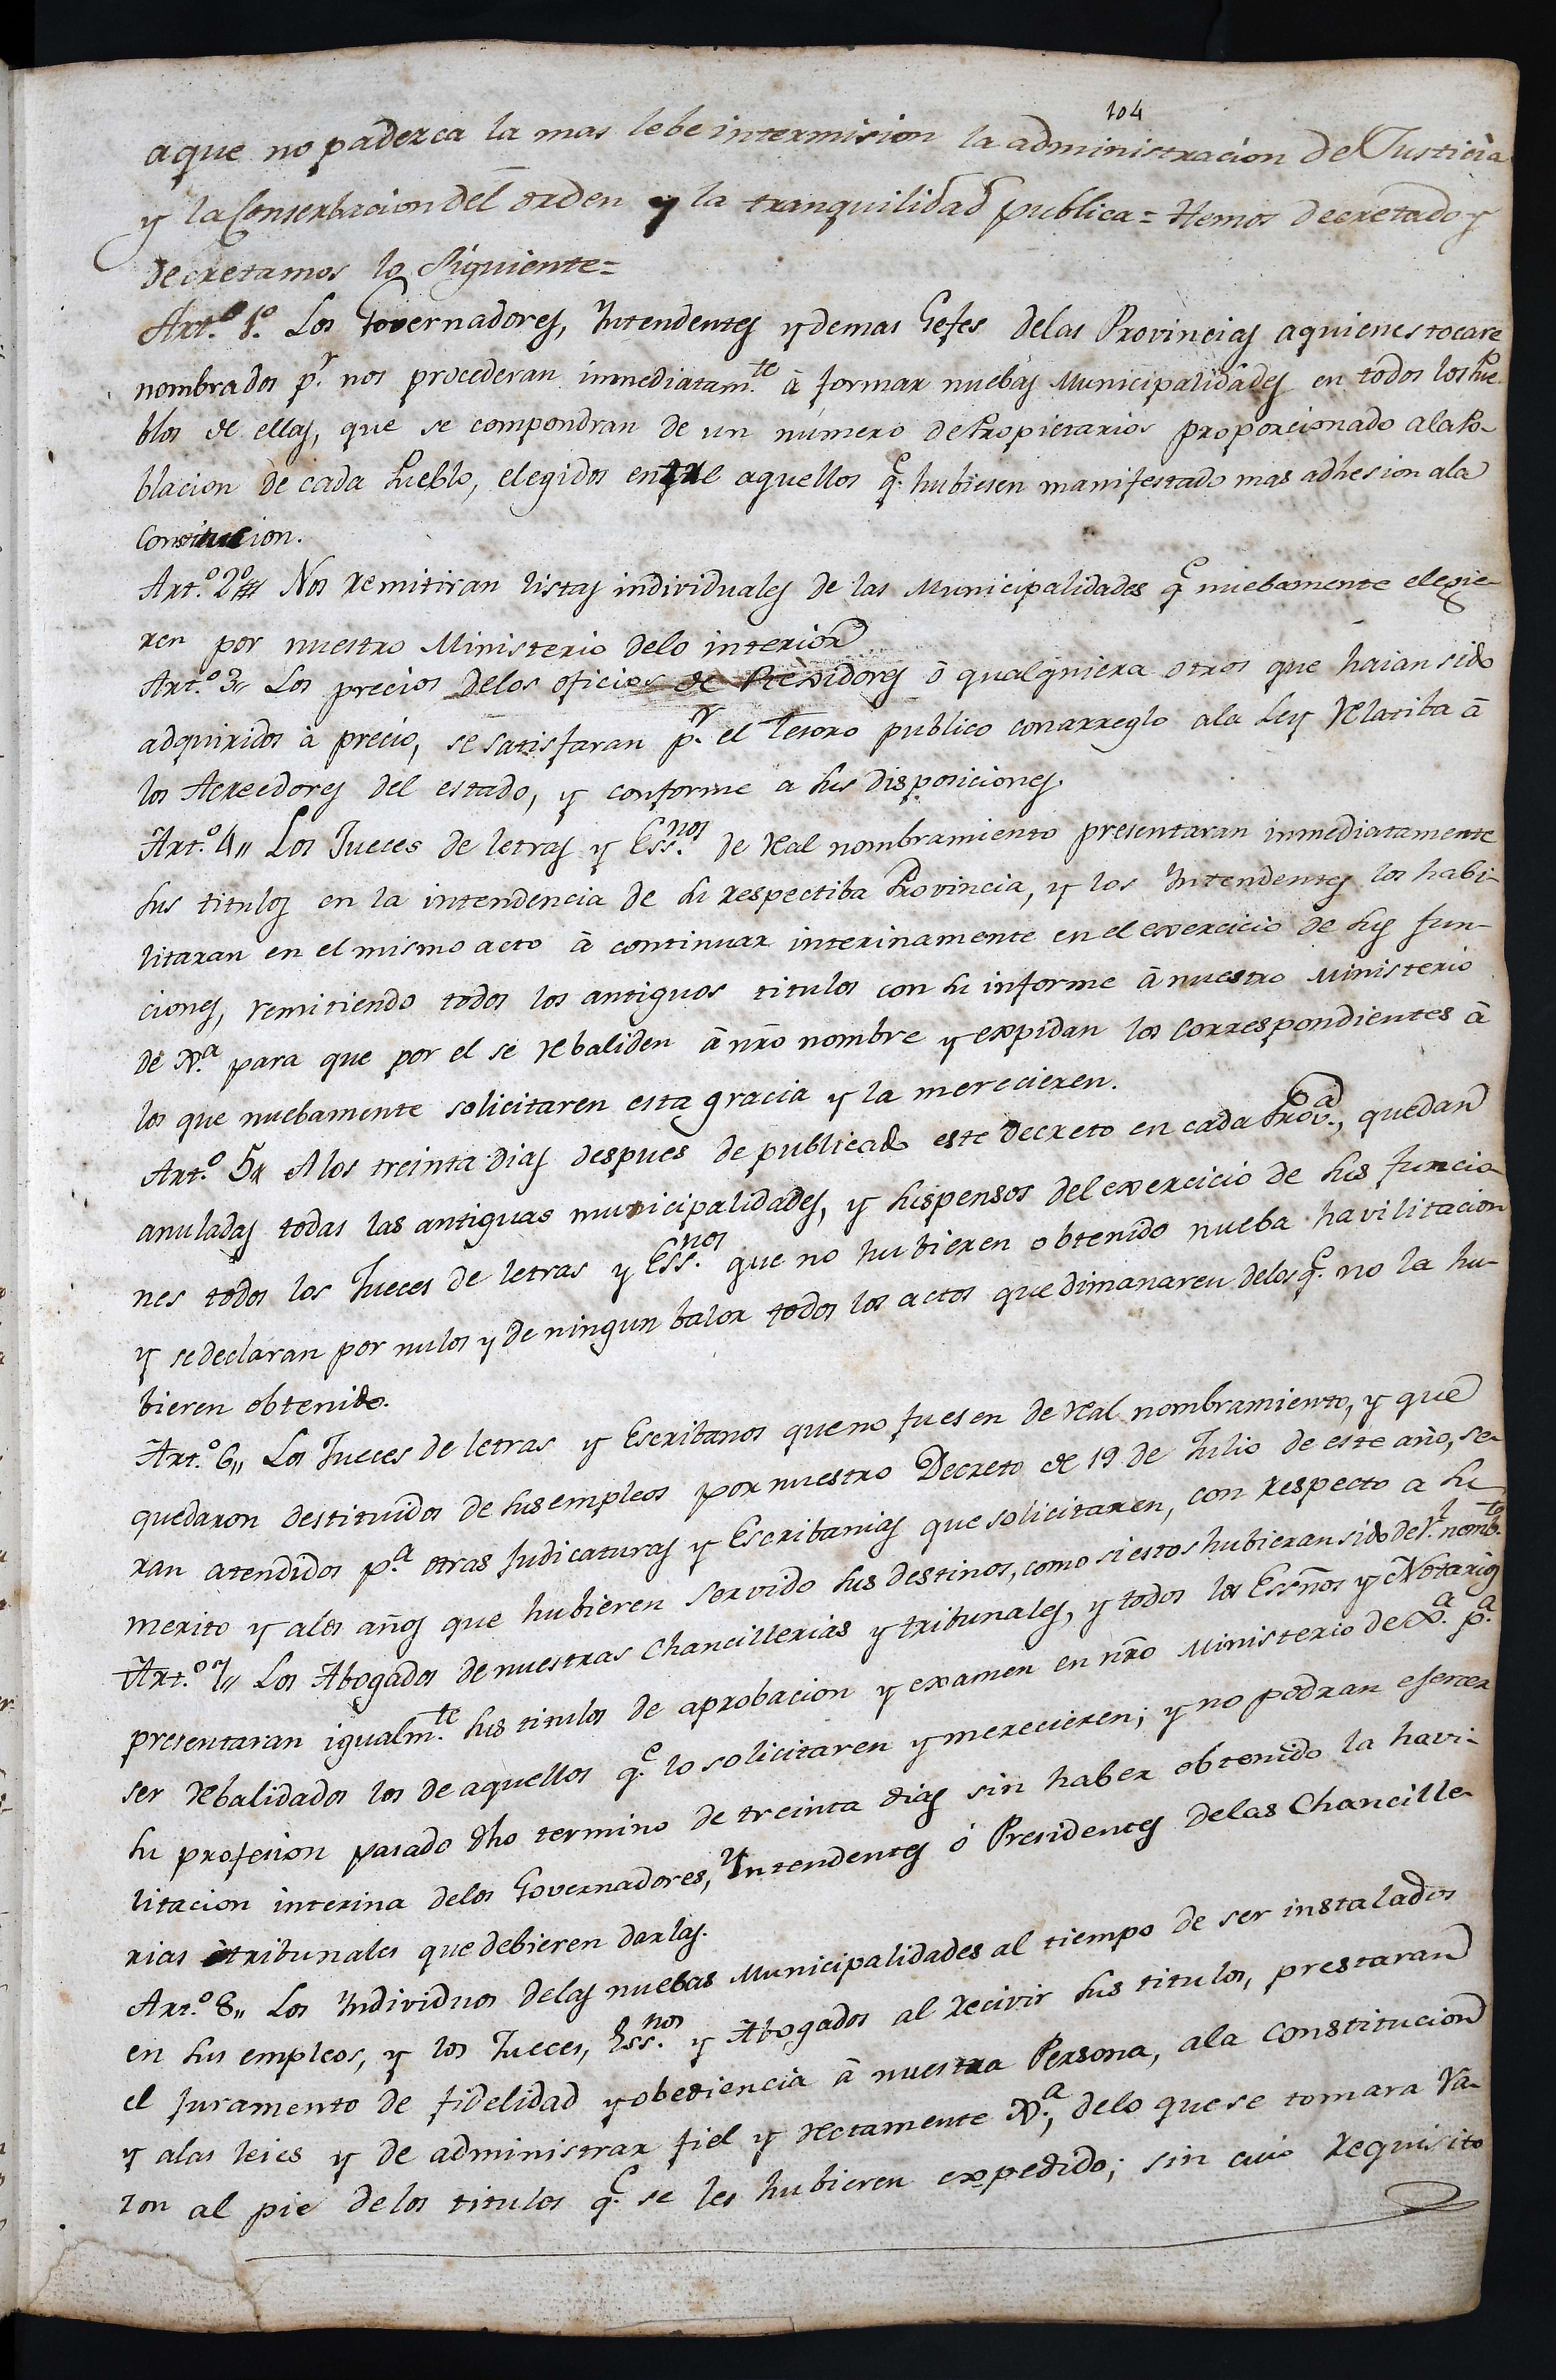 104
aque no padezca la mas lebe intermision la administracion de Justicia
y la Conserbacion del orden y la tranquilidad publica = Hemos decretado y
decretamos lo Siguiente =
Art.º 1.º Los Governadores, Intendentes y demas Gefes de las Provincias aquienes tocare
nombrados p.r nos procederan inmediatam.te à formar nuebas Municipalidades en todos los Pue-
blos de ellas, que se compondran de un número de Propietarios proporcionado ala Po-
blacion de cada Pueblo, elegidos entre aquellos q.e hubiesen manifestado mas adhesion ala
Constitucion.
Art.º 2º Nos remitiran listas individuales de las Municipalidades q.e nuebamente elegie-
ren por nuestro Ministerio delo interior
Art.º 3 Los precios delos oficios de Rexidores ò qualquiera otros que haian sido
adquiridos à precio, se satisfaran p.r el Tesoro publico conarreglo ala Ley relatiba à
los Acreedores del estado, y conforme a sus disposiciones.
Art.º 4,, Los Jueces de letras y Ess.nos de real nombramiento presentaran inmediatamente
sus titulos en la intendencia de su respectiba Provincia, y los Intendentes los habi-
litaran en el mismo acto à continuar interinamente en el exercicio de sus fun-
ciones, remitiendo todos los antiguos titulos con su informe à nuestro Ministerio
de X.a para que por el se rebaliden à nro nombre y expidan los correspondientes à
los que nuebamente solicitaren esta gracia y la merecieren.
Art.º 5 A los treinta dias despues de publicado este decreto en cada Prov.a, quedan
anuladas todas las antiguas municipalidades, y suspensos del exercicio de sus funcio-
nes todos los Jueces de letras y Ess.nos que no hubieren obtenido nueba havilitacion
y se declaran por nulos y de ningun balor todos los actos que dimanaren delos q.e no la hu-
bieren obtenido.
Art.º 6,, Los Jueces de letras y Escribanos que no fuesen de real nombramiento, y que
quedaron destituidos de sus empleos por nuestro Decreto de 19 de Julio de este año, se-
ran atendidos p.a otras Judicaturas y Escribanias que solicitaren, con respecto a su
merito y alos años que hubieren servido sus destinos, como si estos hubieran sido de r.l nomb.to
Art.º 7,, Los Abogados de nuestras Chancillerias y tribunales, y todos los Essños y Notarios
presentaran igualm.te sus titulos de aprobacion y examen en nro Ministerio de X.a p.a
ser rebalidados los de aquellos q.e lo solicitaren y merecieren; y no podran esercer
su profesion pasado dho termino de treinta dias sin haber obtenido la havi-
litacion interina delos Governadores, Yntendentes ó Presidentes delas Chancille-
rias ò tribunales que debieren darlas.
Art.º 8,, Los Individuos delas nuebas Municipalidades al tiempo de ser instalados
en sus empleos, y los Jueces, Ess.nos y Abogados al recivir sus titulos, prestaran
el Juramento de fidelidad y obediencia à nuestra Persona, ala Constitucion
y alas leies y de administrar fiel y rectamente X.a, delo que se tomara ra-
zon al pie delos titulos q.e se les hubieren expedido; sin cuio requisito